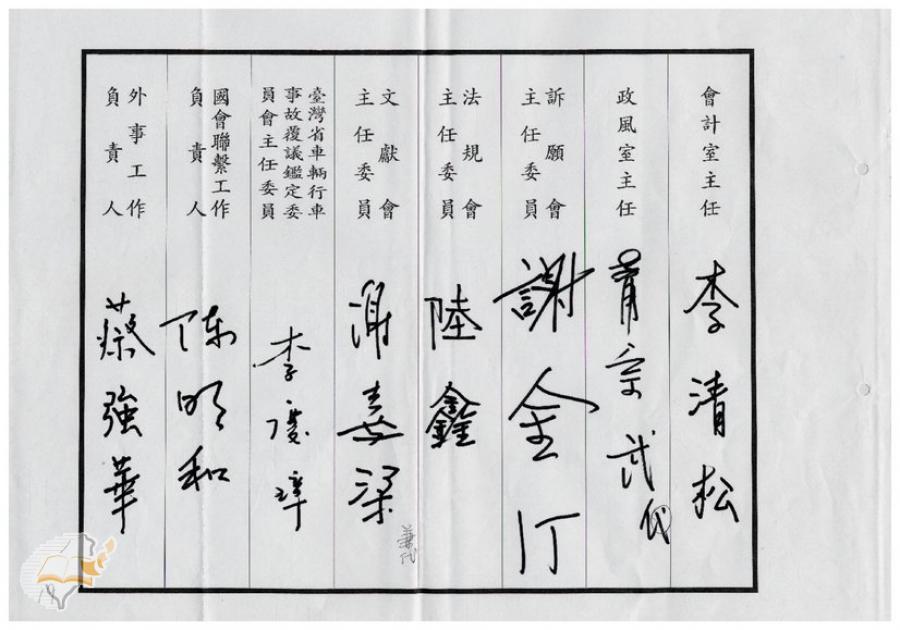 會計室主任
李清松
政風室主任
宗武代
訴願會
主任委員
謝金汀
法規會
主任委員
陸鑫
文獻會
主任委員
謝嘉梁
兼代
臺灣省車輛行車
事故覆議鑑定委
員會主任委員
李慶璋
國會聯繫工作
負責人
陳明和
外事工作
負責人
蔡強華